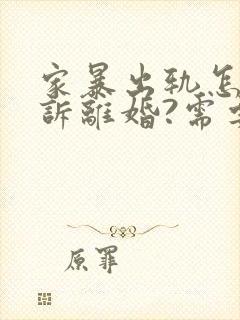 家暴出轨怎
訴離婚?需
原罪